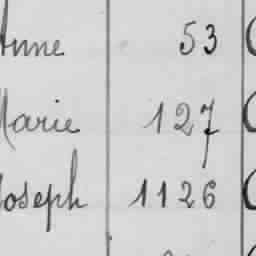 Anne 53
Marie 127
Joseph 1126